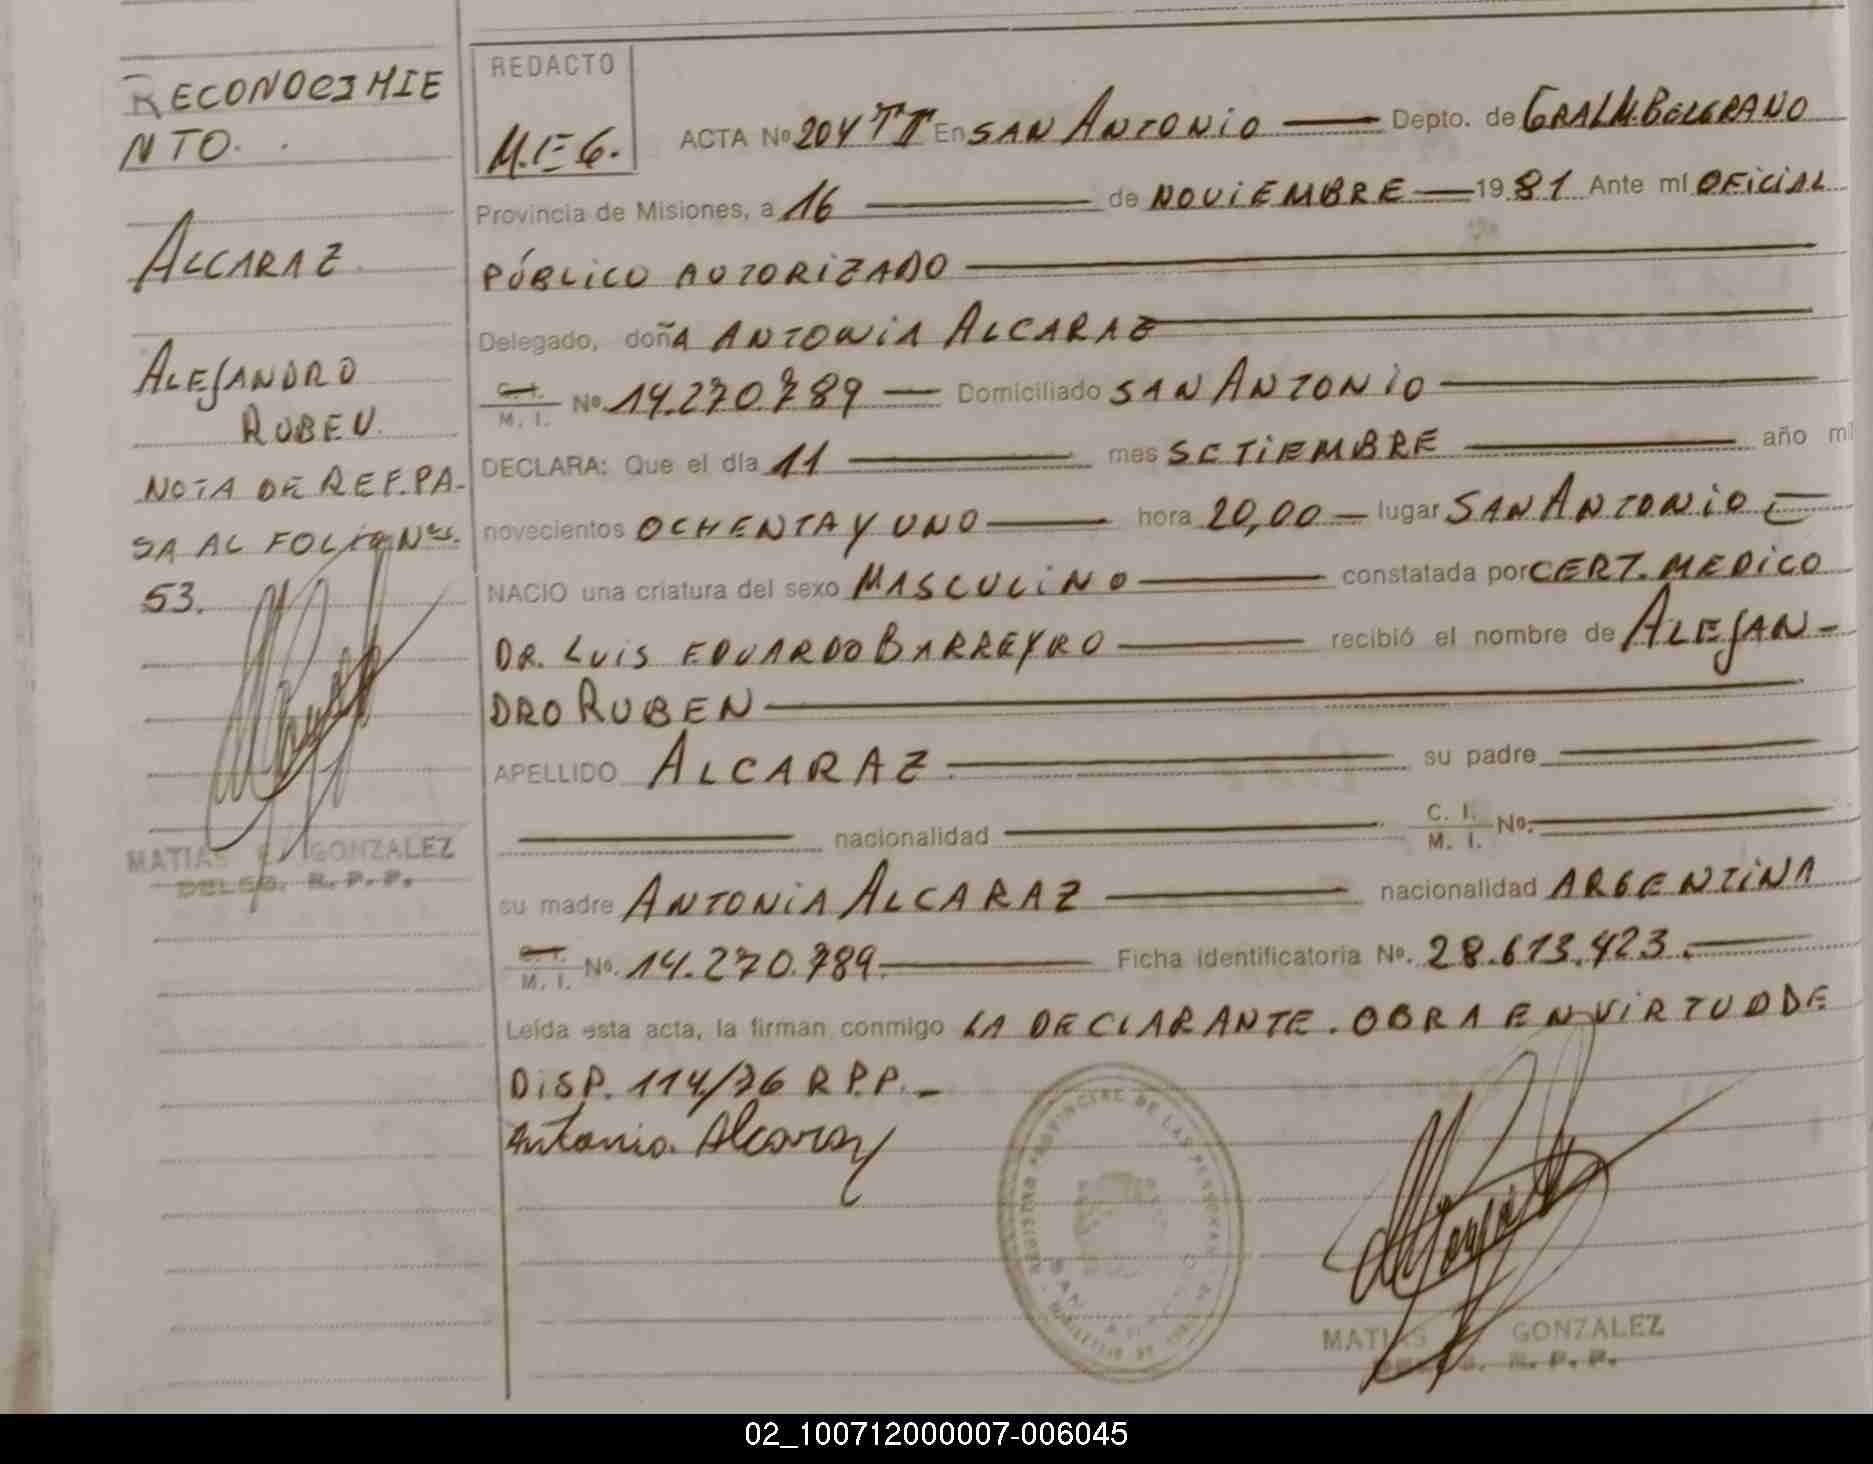 RECONOCIMIE
NTO.
ALCARAZ
ALEJANDRO
RUBEN.
NOTA DE REF. PA-
SA AL FOLIO Nº
53.
MATIAS GONZALEZ
DELEG. R. P. P.
REDACTO
M.E.G.
ACTA Nº 204 TT En SAN ANTONIO Depto. de GRAL M. BELGRANO
Provincia de Misiones, a 16 de NOVIEMBRE 1981 Ante mí OFICIAL
PÚBLICO AUTORIZADO
Delegado, doñA ANTONIA ALCARAZ
C. I.
M. I. Nº 14.270.789 Domiciliado SAN ANTONIO
DECLARA: Que el día 11 mes SETIEMBRE año mil
novecientos OCHENTA Y UNO hora 20,00 lugar SAN ANTONIO
NACIO una criatura del sexo MASCULINO constatada por CERT. MEDICO
DR. LUIS EDUARDO BARREYRO recibió el nombre de ALEJAN-
DRO RUBEN
APELLIDO ALCARAZ su padre
nacionalidad C. I.
M. I. Nº.
su madre ANTONIA ALCARAZ nacionalidad ARGENTINA
C. I.
M. I. Nº. 14.270.789. Ficha identificatoria Nº. 28.613.423.
Leída esta acta, la firman conmigo LA DECLARANTE. OBRA EN VIRTUD DE
DISP. 114/76 R.P.P.-
Antonia Alcaraz
REGISTRO PROVINCIAL DE LAS PERSONAS
MATIAS GONZALEZ
DELEG. R. P. P.
02_100712000007-006045